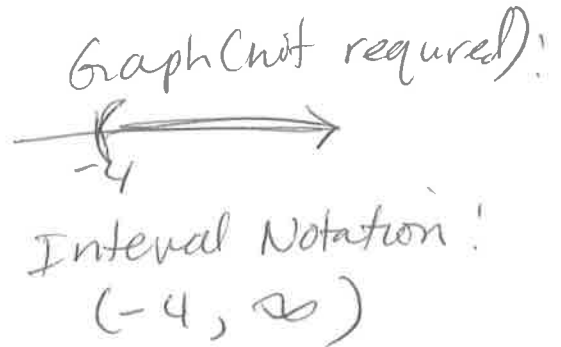 Graph (not requred):
(
-4
Interval Notation:
(-4, ∞)